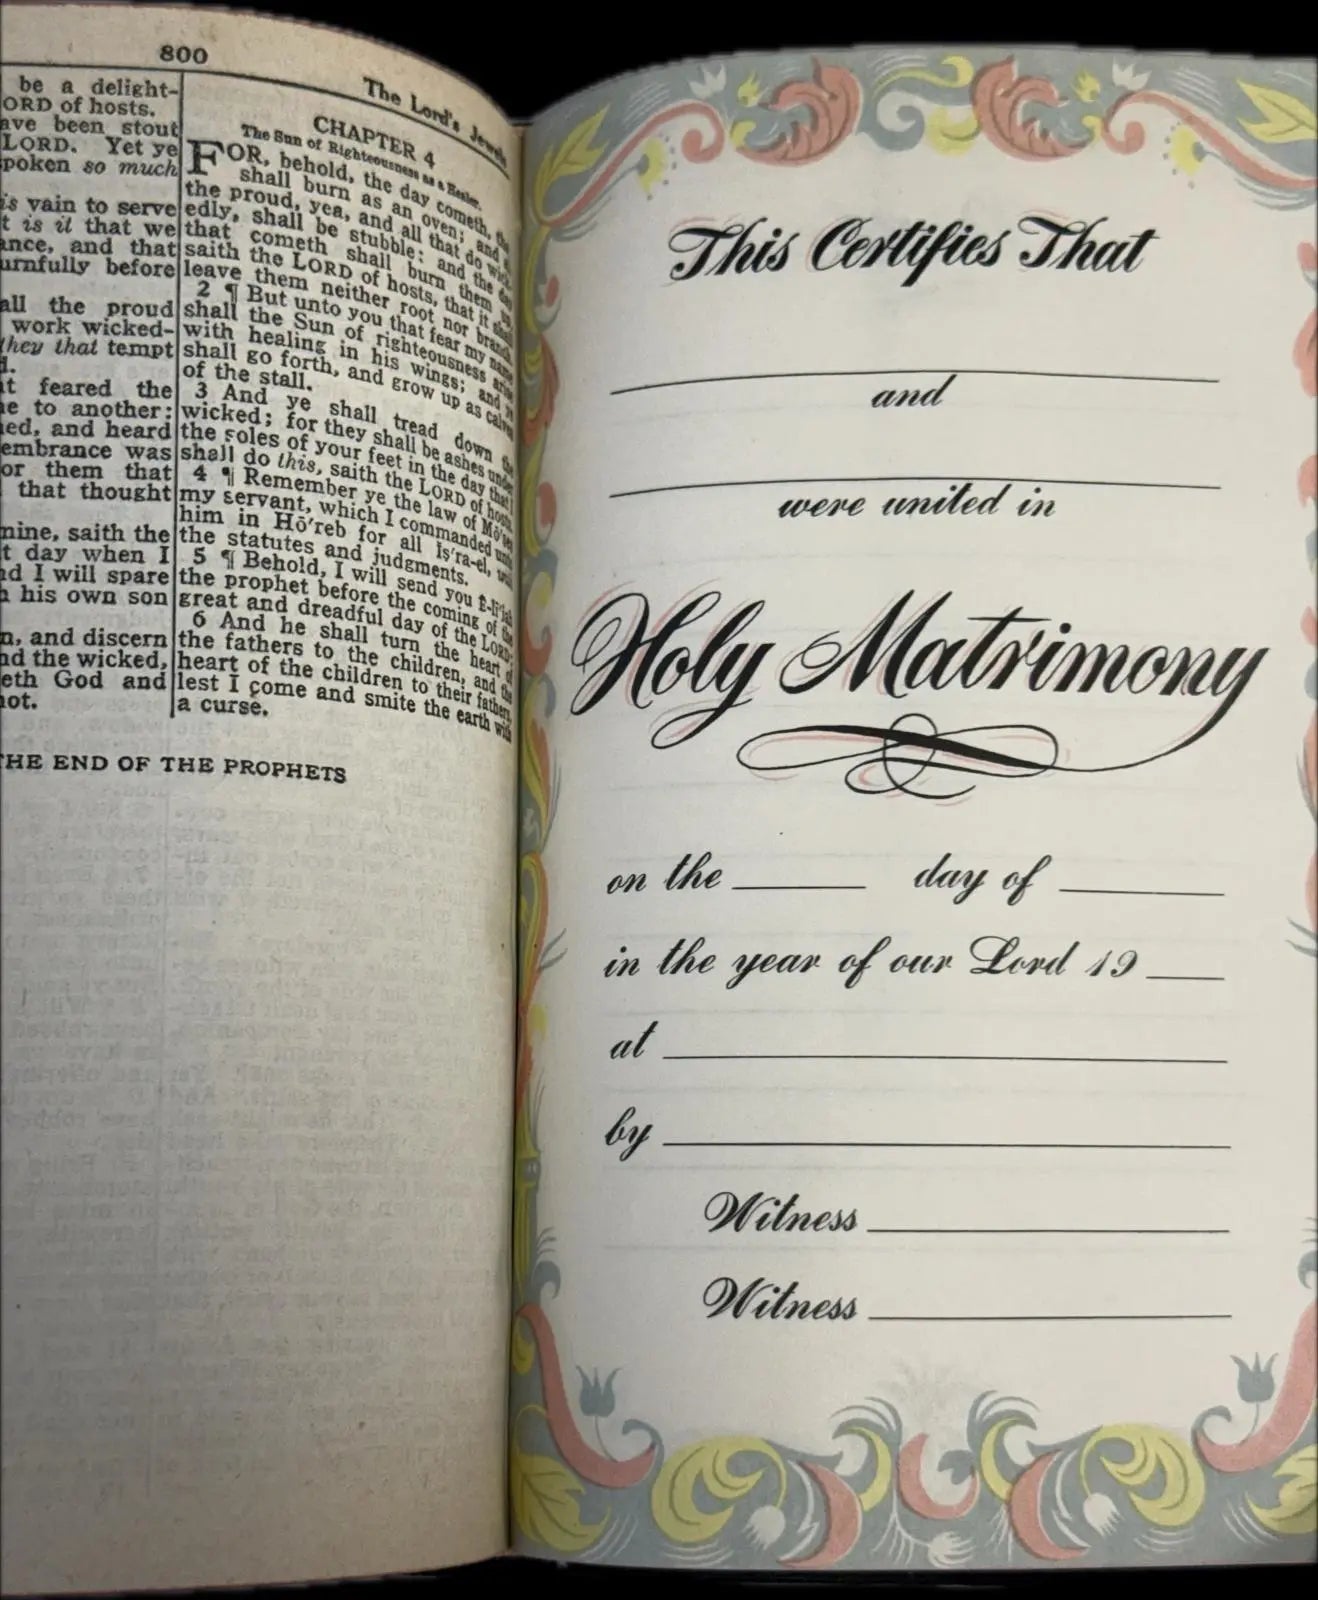 800
The Lord's Jewels
be a delight-
ORD of hosts.
ave been stout
LORD. Yet ye
poken so much
is vain to serve
t is it that we
ance, and that
urnfully before
all the proud
work wicked-
they that tempt
d.
t feared the
e to another:
ed, and heard
embrance was
or them that
that thought
mine, saith the
t day when I
nd I will spare
his own son
n, and discern
nd the wicked,
eth God and
not.
CHAPTER 4
The Sun of Righteousness as a Healer.
FOR, behold, the day cometh,
shall burn as an oven; and
the proud, yea, and all that do wick-
edly, shall be stubble: and the day
that cometh shall burn them up,
saith the LORD of hosts, that it shall
leave them neither root nor branch.
2 ¶ But unto you that fear my name
shall the Sun of righteousness arise
with healing in his wings; and ye
shall go forth, and grow up as calves
of the stall.
3 And ye shall tread down the
wicked; for they shall be ashes under
the soles of your feet in the day that I
shall do this, saith the LORD of hosts.
4 ¶ Remember ye the law of Mō'ses
my servant, which I commanded unto
him in Hō'reb for all Iṣ'ra-el, with
the statutes and judgments.
5 ¶ Behold, I will send you Ē-lī'jah
the prophet before the coming of the
great and dreadful day of the LORD:
6 And he shall turn the heart of
the fathers to the children, and the
heart of the children to their fathers,
lest I come and smite the earth with
a curse.
THE END OF THE PROPHETS
This Certifies That
and
were united in
Holy Matrimony
on the ______ day of ______
in the year of our Lord 19 ___
at ______
by ______
Witness ______
Witness ______